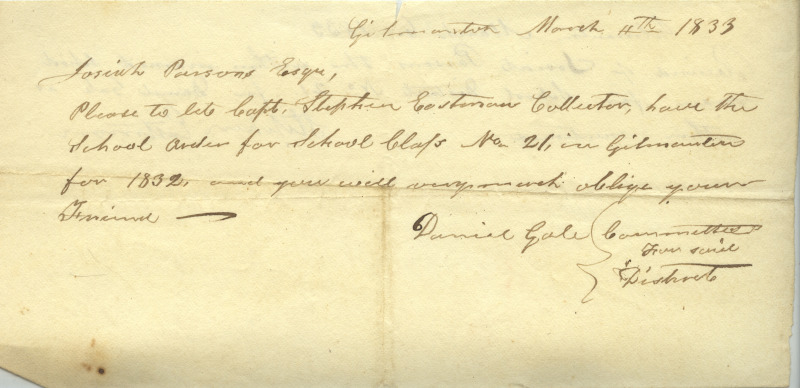 Gilmanton March 4th 1833
Josiah Parsons Esqr,
Please to let Capt. Stephen Eastman Collector, have the
School order for School Class No 21, in Gilmanton
for 1832, and you will very much oblige your
Friend
Daniel Gale Committee
For said
District